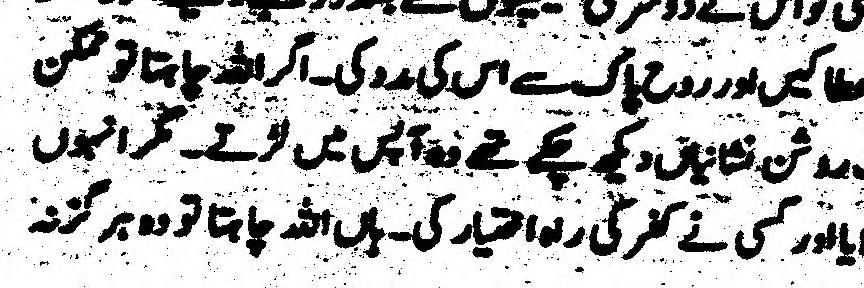 عطا کیں اور روح پاک سے اس کی مدد کی۔ اگر اللہ چاہتا تو ممکن
روشن نشانیاں دیکھ چکے تھے وہ آپس میں لڑتے۔ مگر انہوں
اور کسی نے کفر کی راہ اختیار کی۔ ہاں اللہ چاہتا تو وہ ہرگز نہ